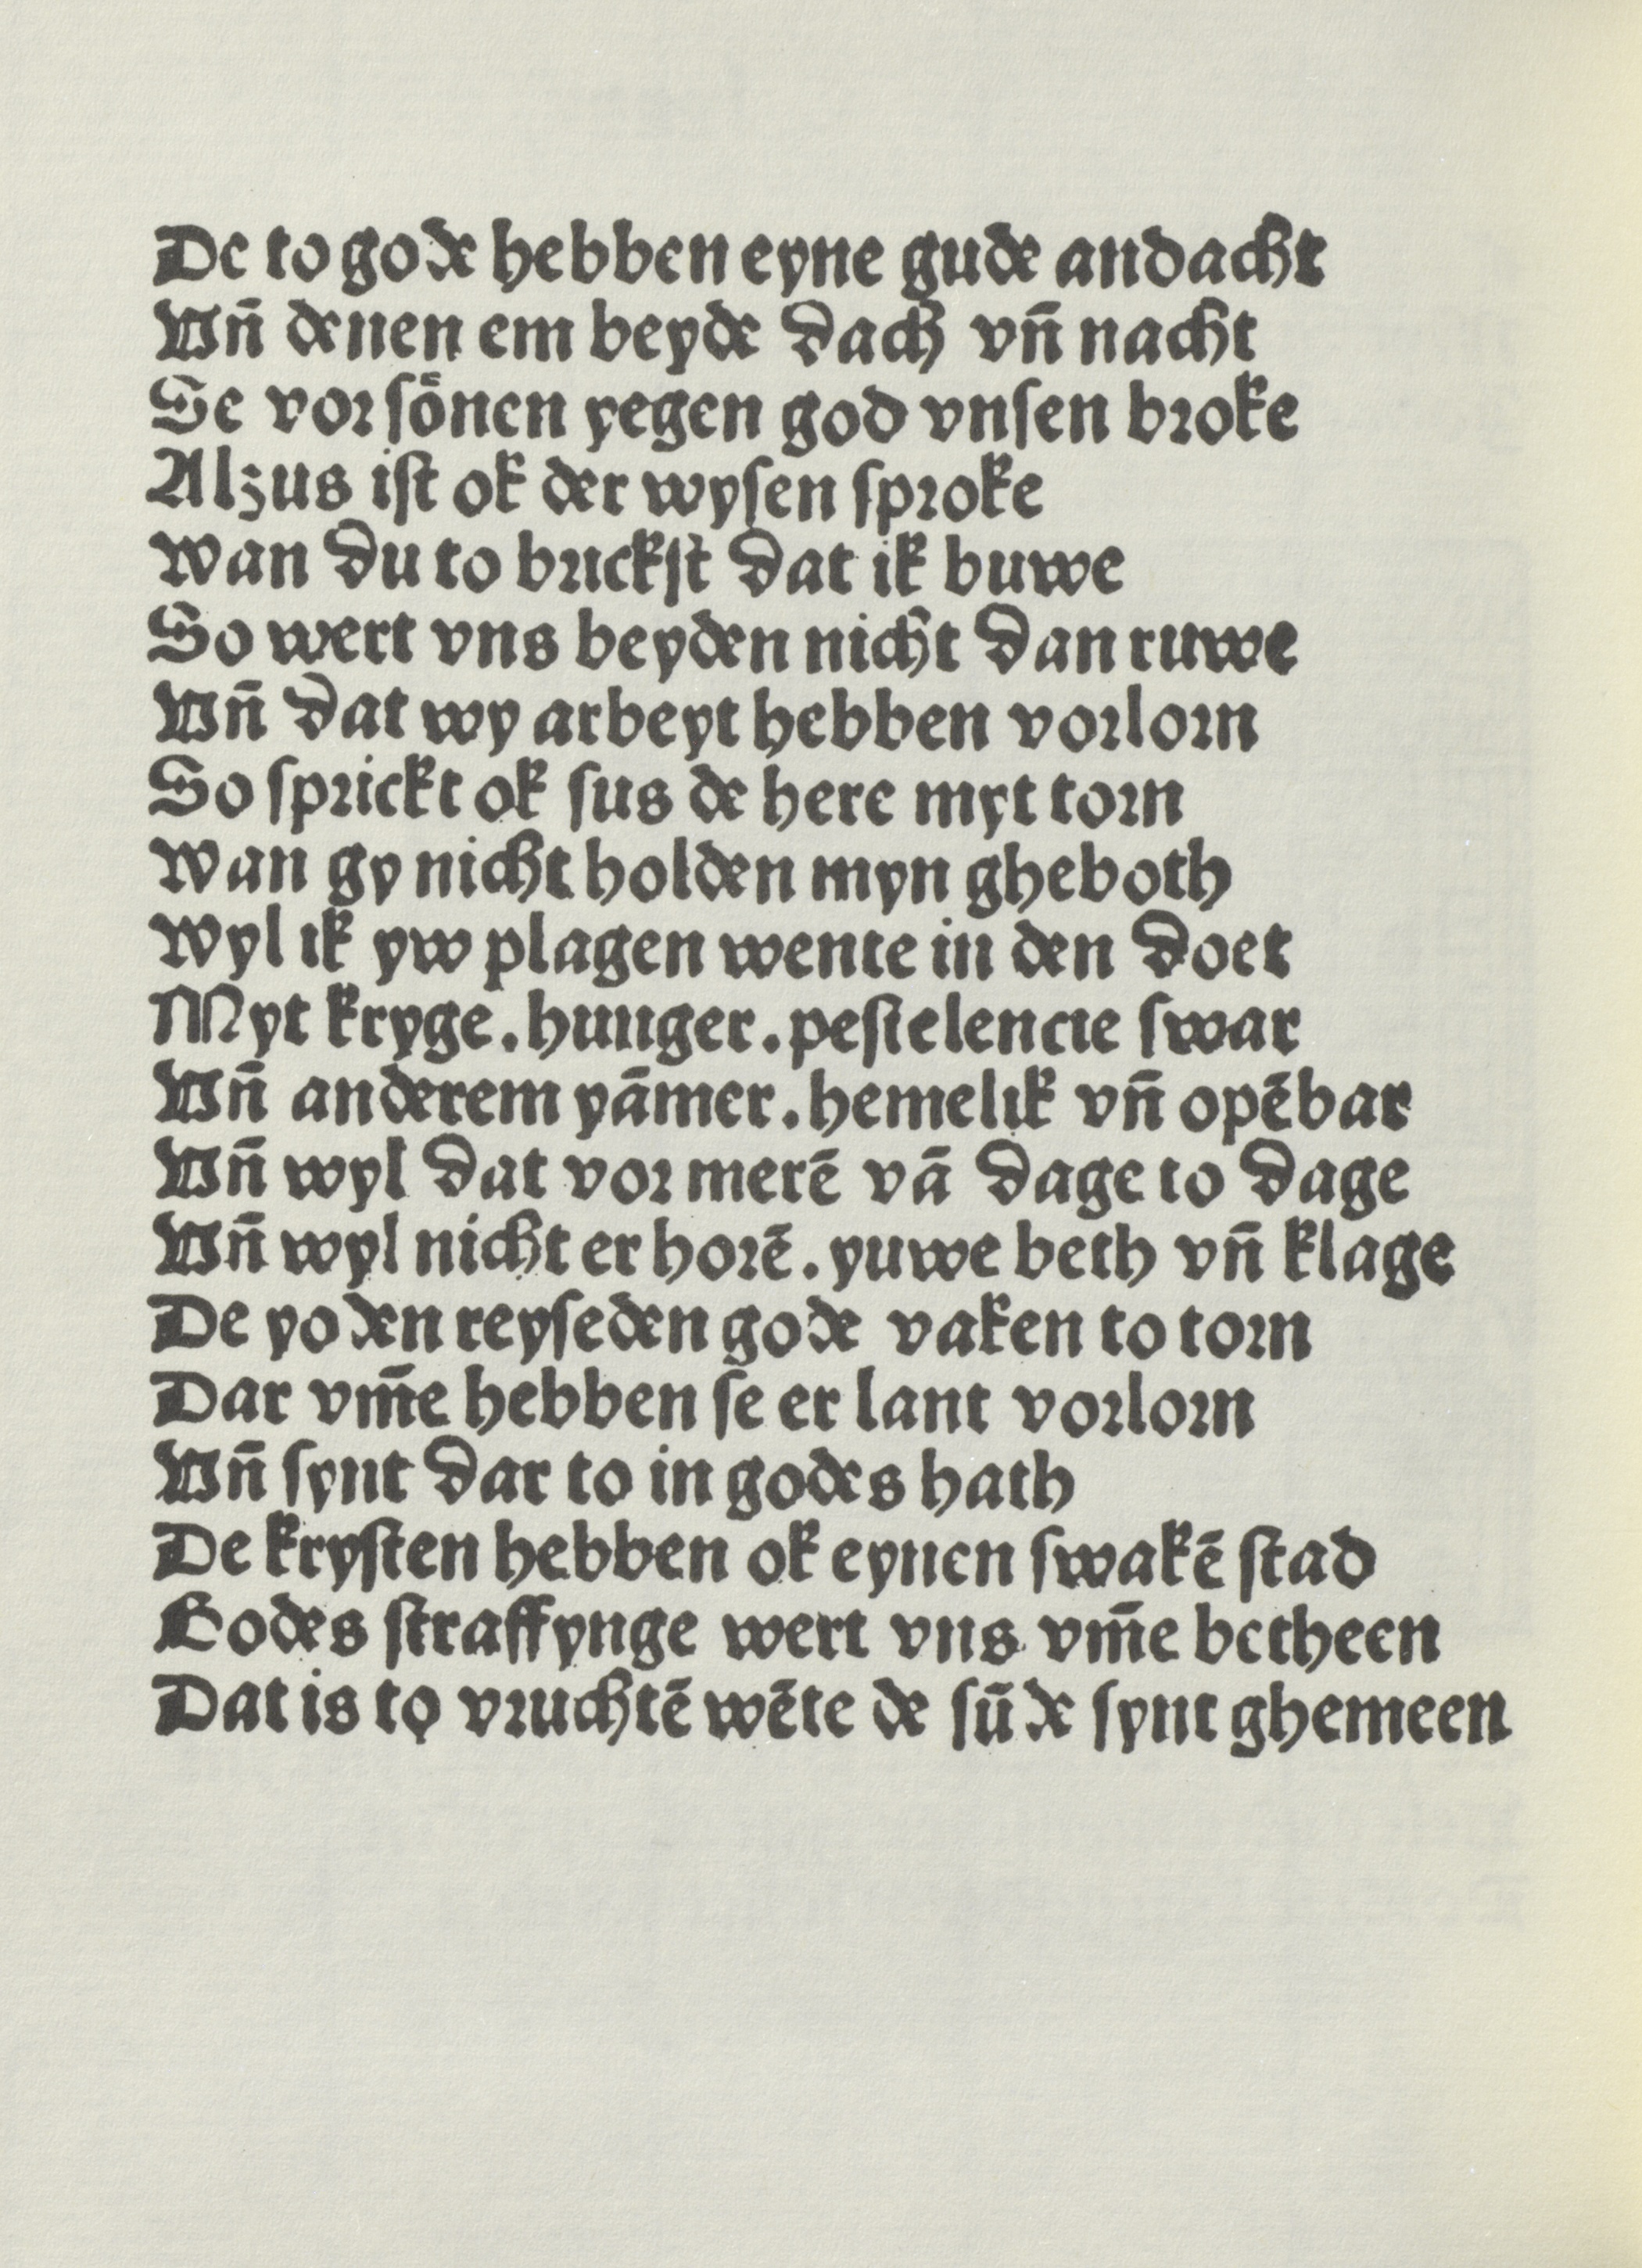 De to gode hebben eyne gude andacht
Vn̄ denen em beyde dach vn̄ nacht
Se vorsoͤnen yegen god vnsen broke
Alzus ist ok der wysen sproke
Wan du to brickst dat ik buwe
So wert vns beyden nicht dan ruwe
Vn̄ dat wy arbeyt hebben vorlorn
So sprickt ok sus de here myt torn
Wan gy nicht holden myn gheboth
Wyl ik yw plagen wente in den doet
Myt kryge. hunger. pestelencie swar
Vn̄ anderem yāmer. hemelik vn̄ opēbar
Vn̄ wyl dat vor merē vā dage to dage
Vn̄ wyl nicht er horē. yuwe beth vn̄ klage
De yoden reyseden gode vaken to torn
Dar vm̄e hebben se er lant vorlorn
Vn̄ synt dar to in godes hath
De krysten hebben ok eynen swakē stad
Godes straffynge wert vns vm̄e betheen
Dat is to vruchtē wēte de sūde synt ghemeen